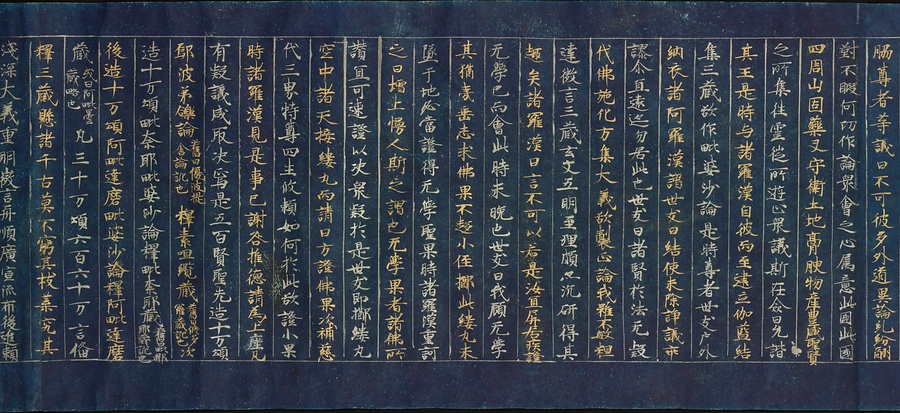 脇尊者等議曰不可彼多外道異論糺紛酬
對不暇何功作論衆會之心属意此國此國
四周山固藥叉守衛土地膏腴物產豊盛賢聖
之所集往靈仙所遊止衆議斯在僉曰允諧
其王是時与諸羅漢自彼而至建立伽藍結
集三藏欲作毗婆沙論是時尊者世友戶外
納衣諸阿羅漢謂世友曰結使未除諍議乖
謬尒宜遠迹勿居此也世友曰諸賢於法无疑
代佛施化方集大義欲製正論我雖不敏粗
達微言三藏玄文五明至理頗亦沉研得其
趣矣諸羅漢曰言不可以若是汝宜屏居疾證
无學已而會此時未晚也世友曰我顧无學
其猶洟唾志求佛果不趍小侄擲此縷丸未
墜于地必當證得无學聖果時諸羅漢重訶
之曰增上慢人斯之謂也无學果者諸佛所
讚宜可速證以决衆疑於是世友即擲縷丸
空中諸天接縷丸而請曰方證佛果次補慈
代三界特尊四生攸賴如何於此欲證小果
時諸羅漢見是事已謝咎推德請為上座凡
有疑議咸取决焉是五百賢聖先造十万頌
鄔波弟鑠論舊曰優波提舍論訛也釋素呾纜藏舊曰修多羅藏訛也次
造十万頌毗奈耶毗婆沙論釋毗奈耶藏舊曰毗那耶藏訛也
後造十万頌阿毗達磨毗婆沙論釋阿毗達磨
藏或曰阿毗曇藏略也凡三十万頌六百六十万言俻
釋三藏懸諸千古莫不窮其枝葉究其
淺深大義重明微言再顯廣宣流布後進賴